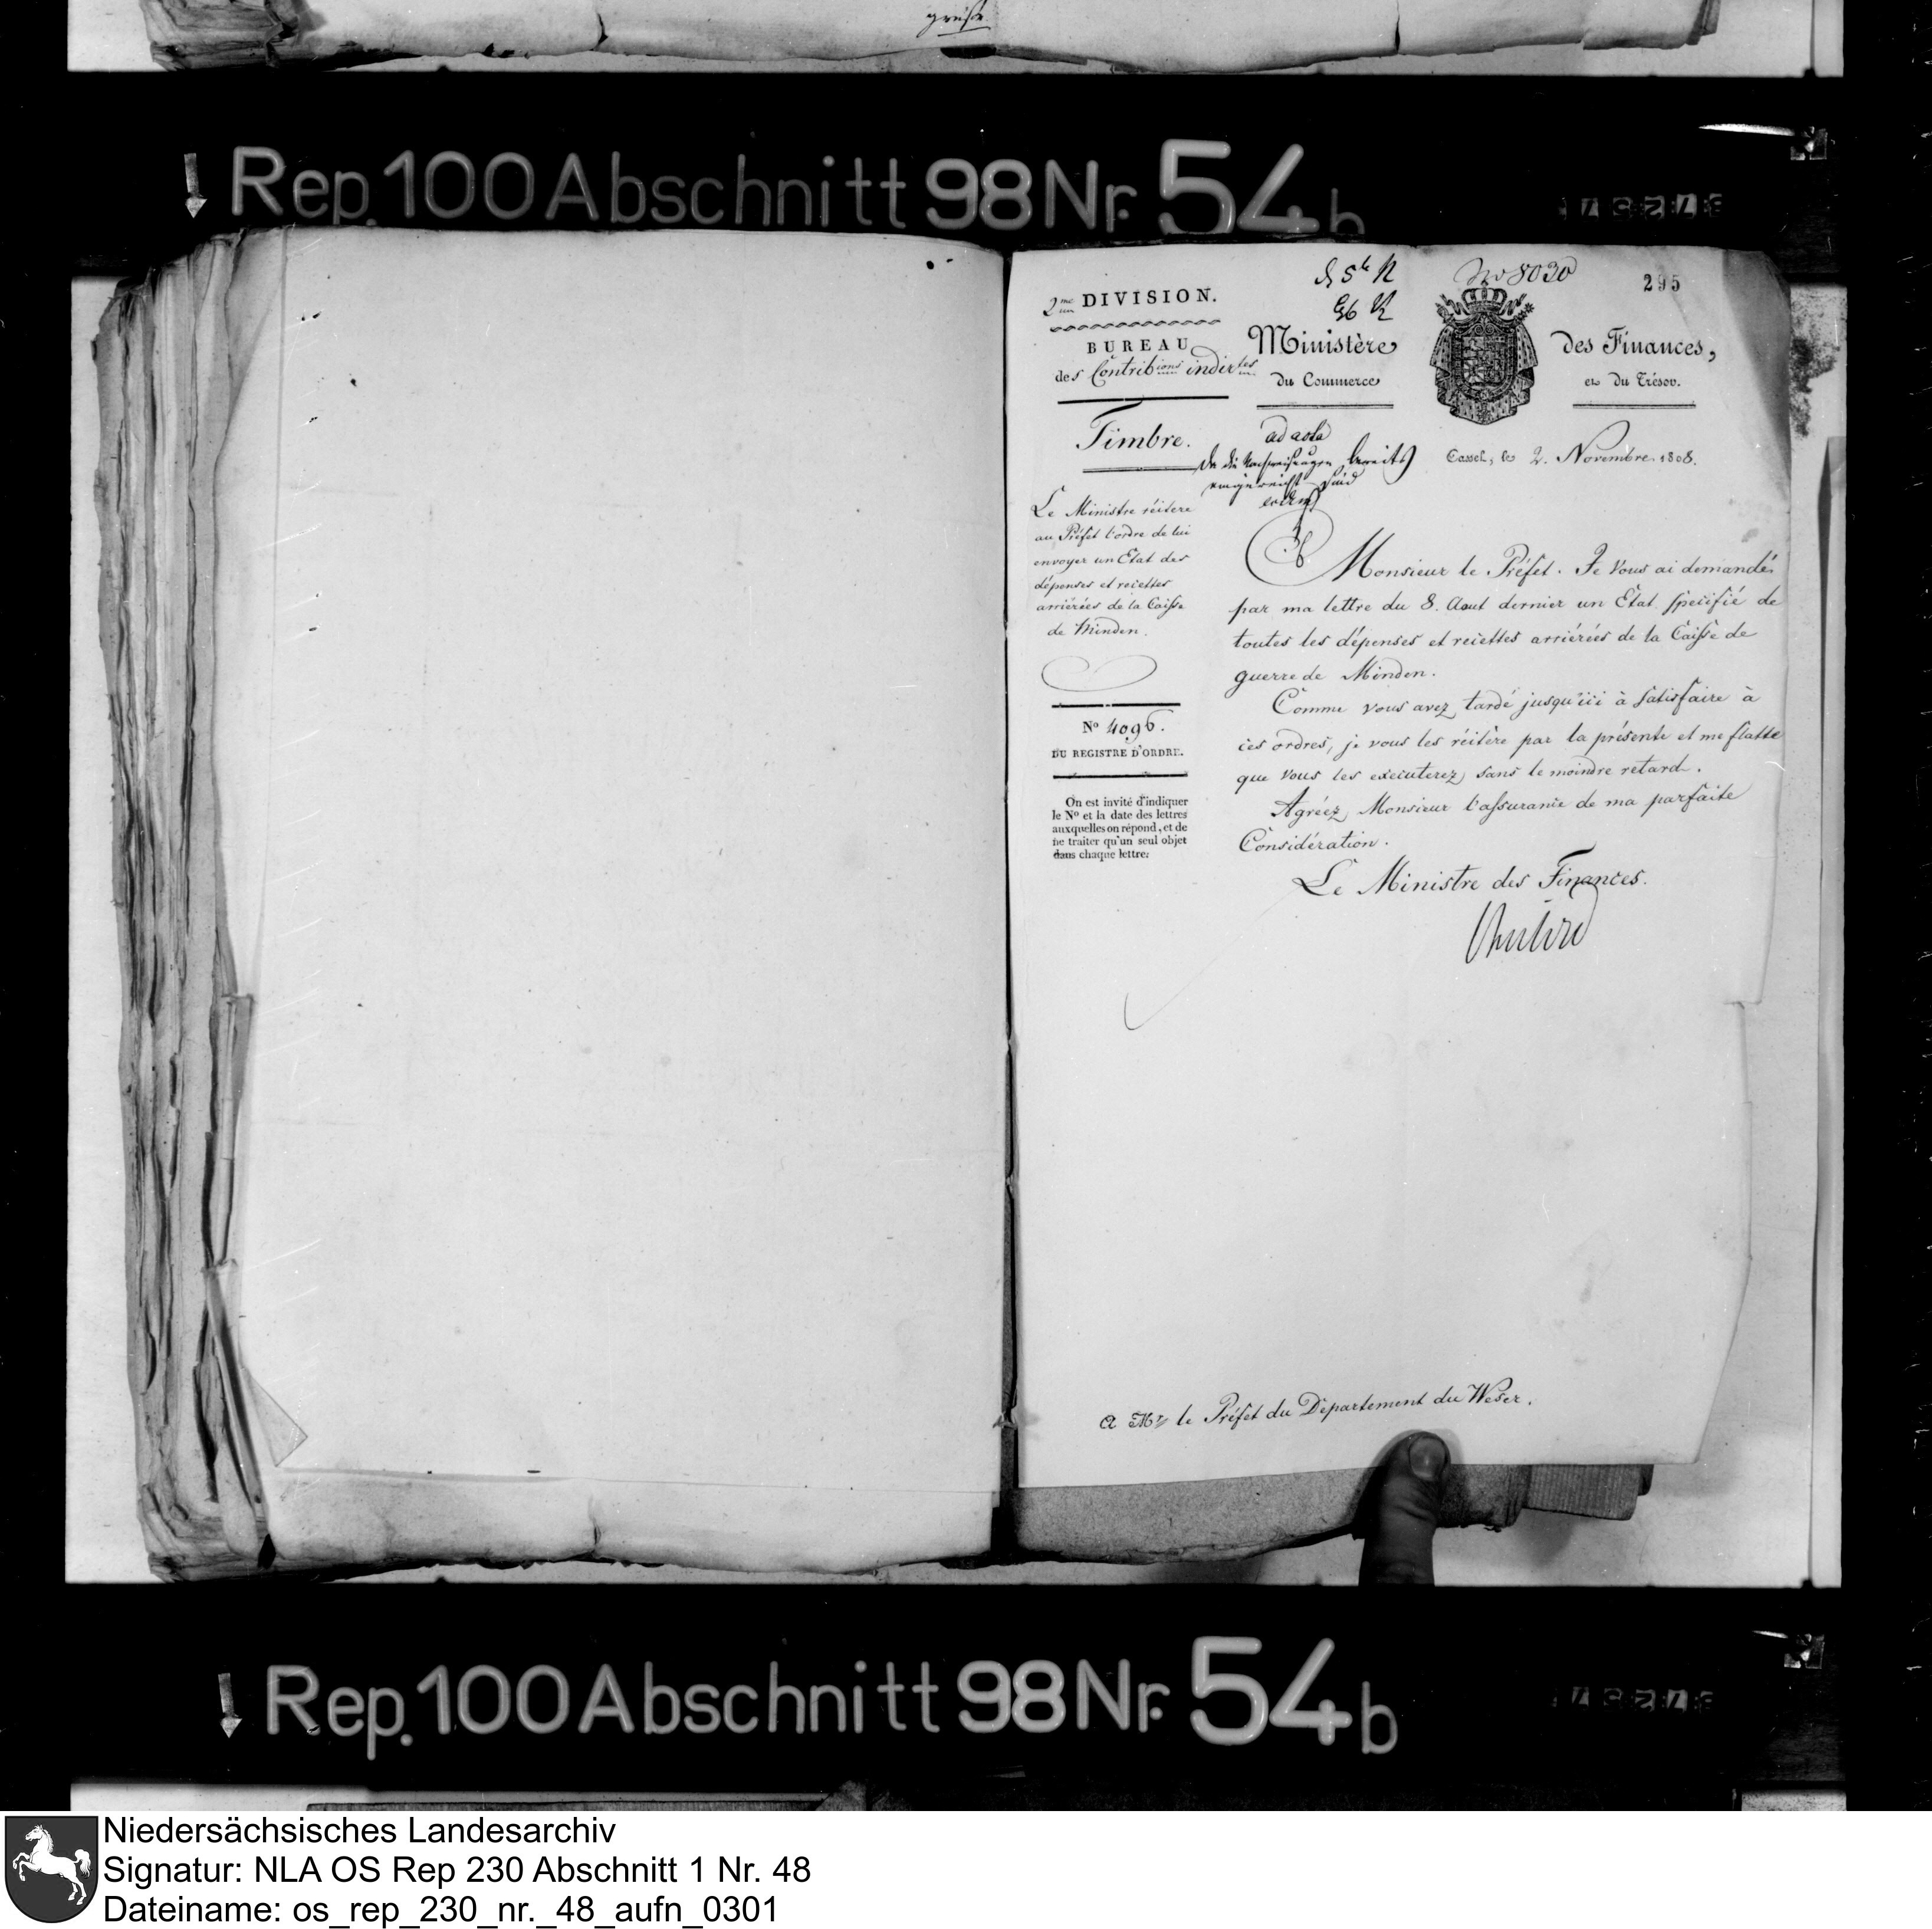 greiste
Rep. 100 Abschnitt 98 Nr. 54 b
No 8030
295
2me DIVISION.
BUREAU
des Contribions indirtes
Ministère des Finances,
du Commerce et du Trésor.
Timbre.
ad acta
da die Nachweisungen bereits
eingereicht sind
Cassel, le 2. Novembre. 1808.
Le Ministre réitere
au Préfet l'ordre de lui
envoyer un Etat des
dépenses et recettes
arriérées de la Caisse
de Minden.
No 4096.
DU REGISTRE D'ORDRE.
On est invité d'indiquer
le No et la date des lettres
auxquelles on répond, et de
ne traiter qu'un seul objet
dans chaque lettre.
Monsieur le Préfet. Je Vous ai demandé
par ma lettre du 8. Aout dernier un Etat specifié de
toutes les dépenses et recettes arriérées de la Caisse de
guerre de Minden.
Comme vous avez tardé jusqu'ici à satisfaire à
ces ordres, je vous les réitère par la présente et me flatte
que Vous les executerez sans le moindre retard.
Agréez, Monsieur l'assurance de ma parfaite
Considération.
Le Ministre des Finances.
A Mr le Préfet du Département du Weser.
Rep. 100 Abschnitt 98 Nr. 54 b
Niedersächsisches Landesarchiv
Signatur: NLA OS Rep 230 Abschnitt 1 Nr. 48
Dateiname: os_rep_230_nr._48_aufn_0301